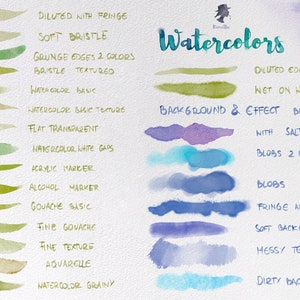 DILUTED WITH FRINGE
SOFT BRISTLE
GRUNGE EDGES 2 COLORS
BRISTLE TEXTURED
WATERCOLOR BASIC
WATERCOLOR BASIC TEXTURE
FLAT TRANSPARENT
WATERCOLOR WHITE GAPS
ACRYLIC MARKER
ALCOHOL MARKER
GOUACHE BASIC
FINE GOUACHE
FINE TEXTURE
AQUARELLE
WATERCOLOR GRAINY
Watercolors
DILUTED EDG
WET ON W
BACKGROUND & EFFECT B
WITH SALT
BLOBS 2
BLOBS
FRINGE
SOFT BACK
MESSY TE
DIRTY BAC